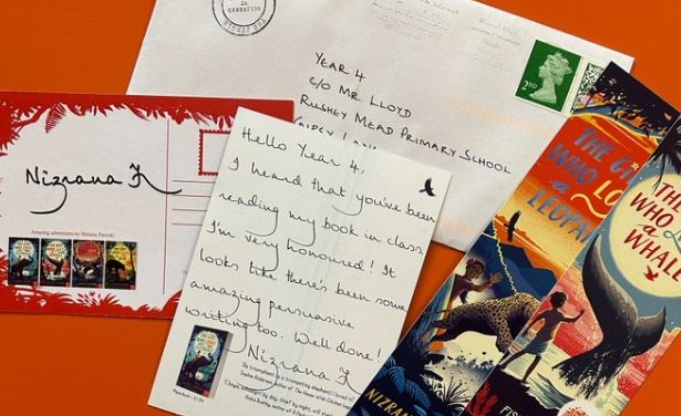 YEAR 4
C/O MR LLOYD
RUSHEY MEAD PRIMARY SCHOOL
2ND
Nizrana
Amazing adventures by Nizrana Farook!
Hello Year 4,
I heard that you've been
reading my book in class.
I'm very honoured! It
looks like there's been some
amazing persuasive
writing too. Well done!
Nizrana
THE
WHO LO
a
LEOPAR
THE
WHO
a
WHALE
NIZRAN